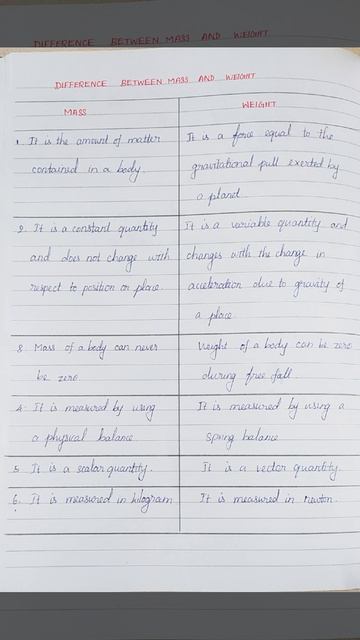 DIFFERENCE BETWEEN MASS AND WEIGHT
DIFFERENCE BETWEEN MASS AND WEIGHT
MASS
WEIGHT
1. It is the amount of matter
contained in a body.
It is a force equal to the
gravitational pull exerted by
a planet
2. It is a constant quantity
and does not change with
respect to position or place.
It is a variable quantity and
changes with the change in
acceleration due to gravity of
a place.
3. Mass of a body can never
be zero
Weight of a body can be zero
during free fall.
4. It is measured by using
a physical balance
It is measured by using a
spring balance
5. It is a scalar quantity.
It is a vector quantity.
6. It is measured in kilogram
It is measured in newton.